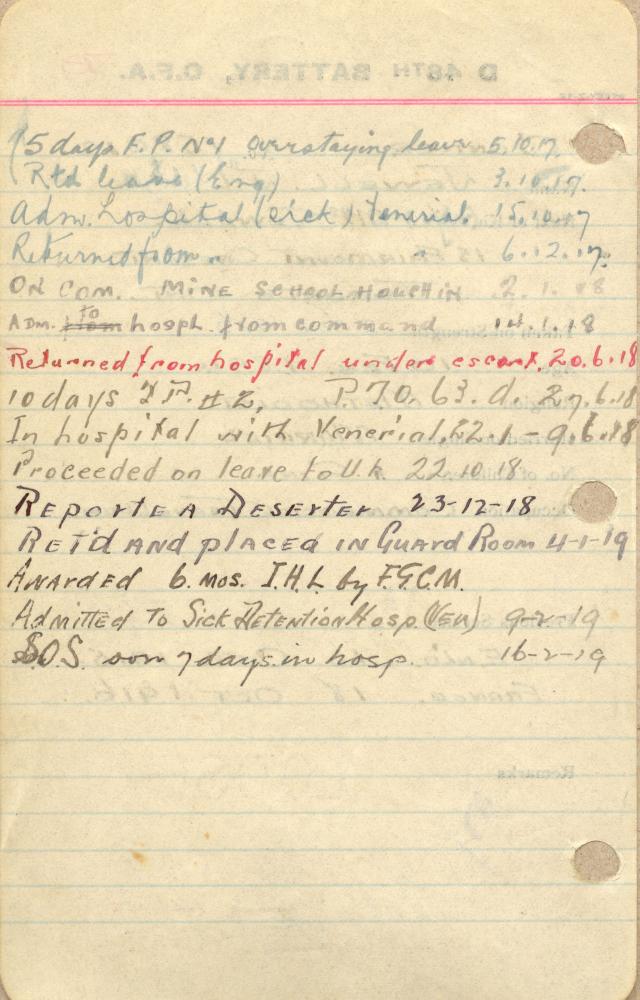 15 days F.P. No1 overstaying leave 5.10.17.
Rtd leave (Eng) 3.10.17.
Adm. hospital (sick) Venerial. 15.10.17
Returned from " " 6.12.17.
ON COM. MINE SCHOOL HOUCHIN 2.1.18
ADM. from to hospl. from command 14.1.18
Returned from hospital under escort. 20.6.18
10 days F.P. #2, P70.63.d. 27.6.18
In hospital with Venerial. 22.1-9.6.18
Proceeded on leave to U.K. 22.10.18
REPORTE A DESERTER 23-12-18
RET'D AND PLACED IN GUARD ROOM 4-1-19
AWARDED 6. mos. I.H.L by F.G.C.M.
Admitted To Sick DETENTION Hosp. (VEN) 9-2-19
S.O.S. over 7 days in hosp. 16-2-19